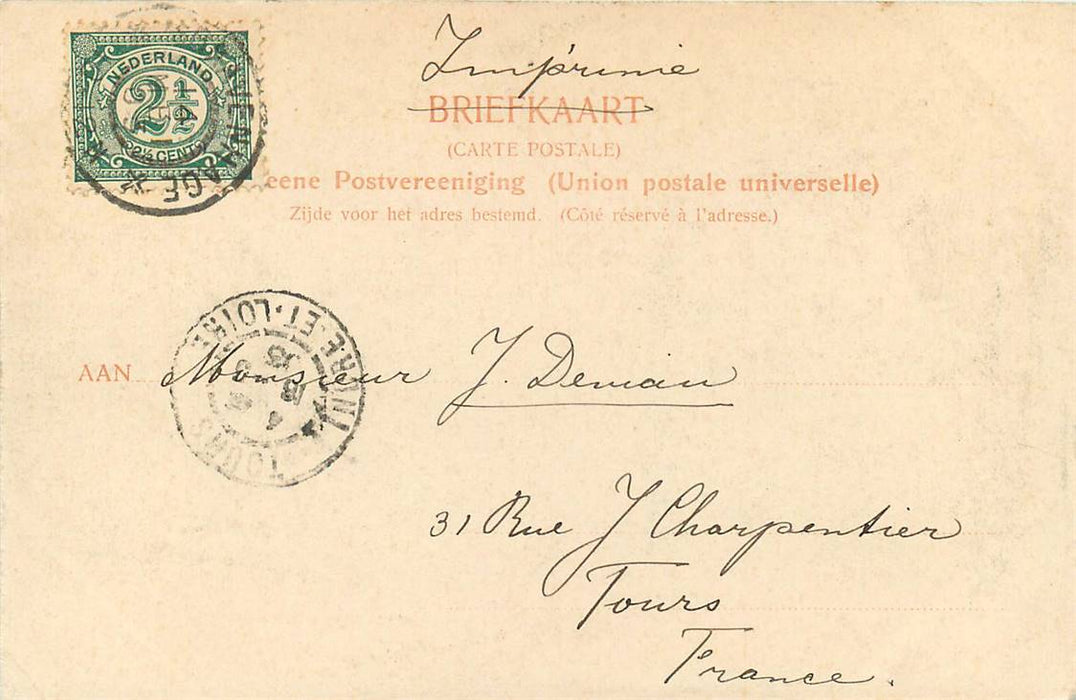 NEDERLAND
2½
2½ CENT
'S GRAVENHAGE
Imprimé
BRIEFKAART
(CARTE POSTALE)
eene Postvereeniging (Union postale universelle)
Zijde voor het adres bestemd. (Côté réservé à l'adresse.)
TOURS INDRE-ET-LOIRE
AAN Monsieur J. Deman
31 Rue J Charpentier
Tours
France.